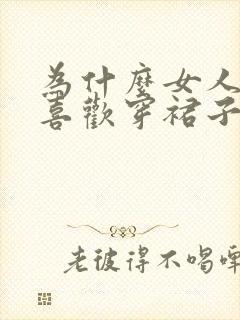 為什麼女人
喜歡穿裙子
老彼得不喝啤